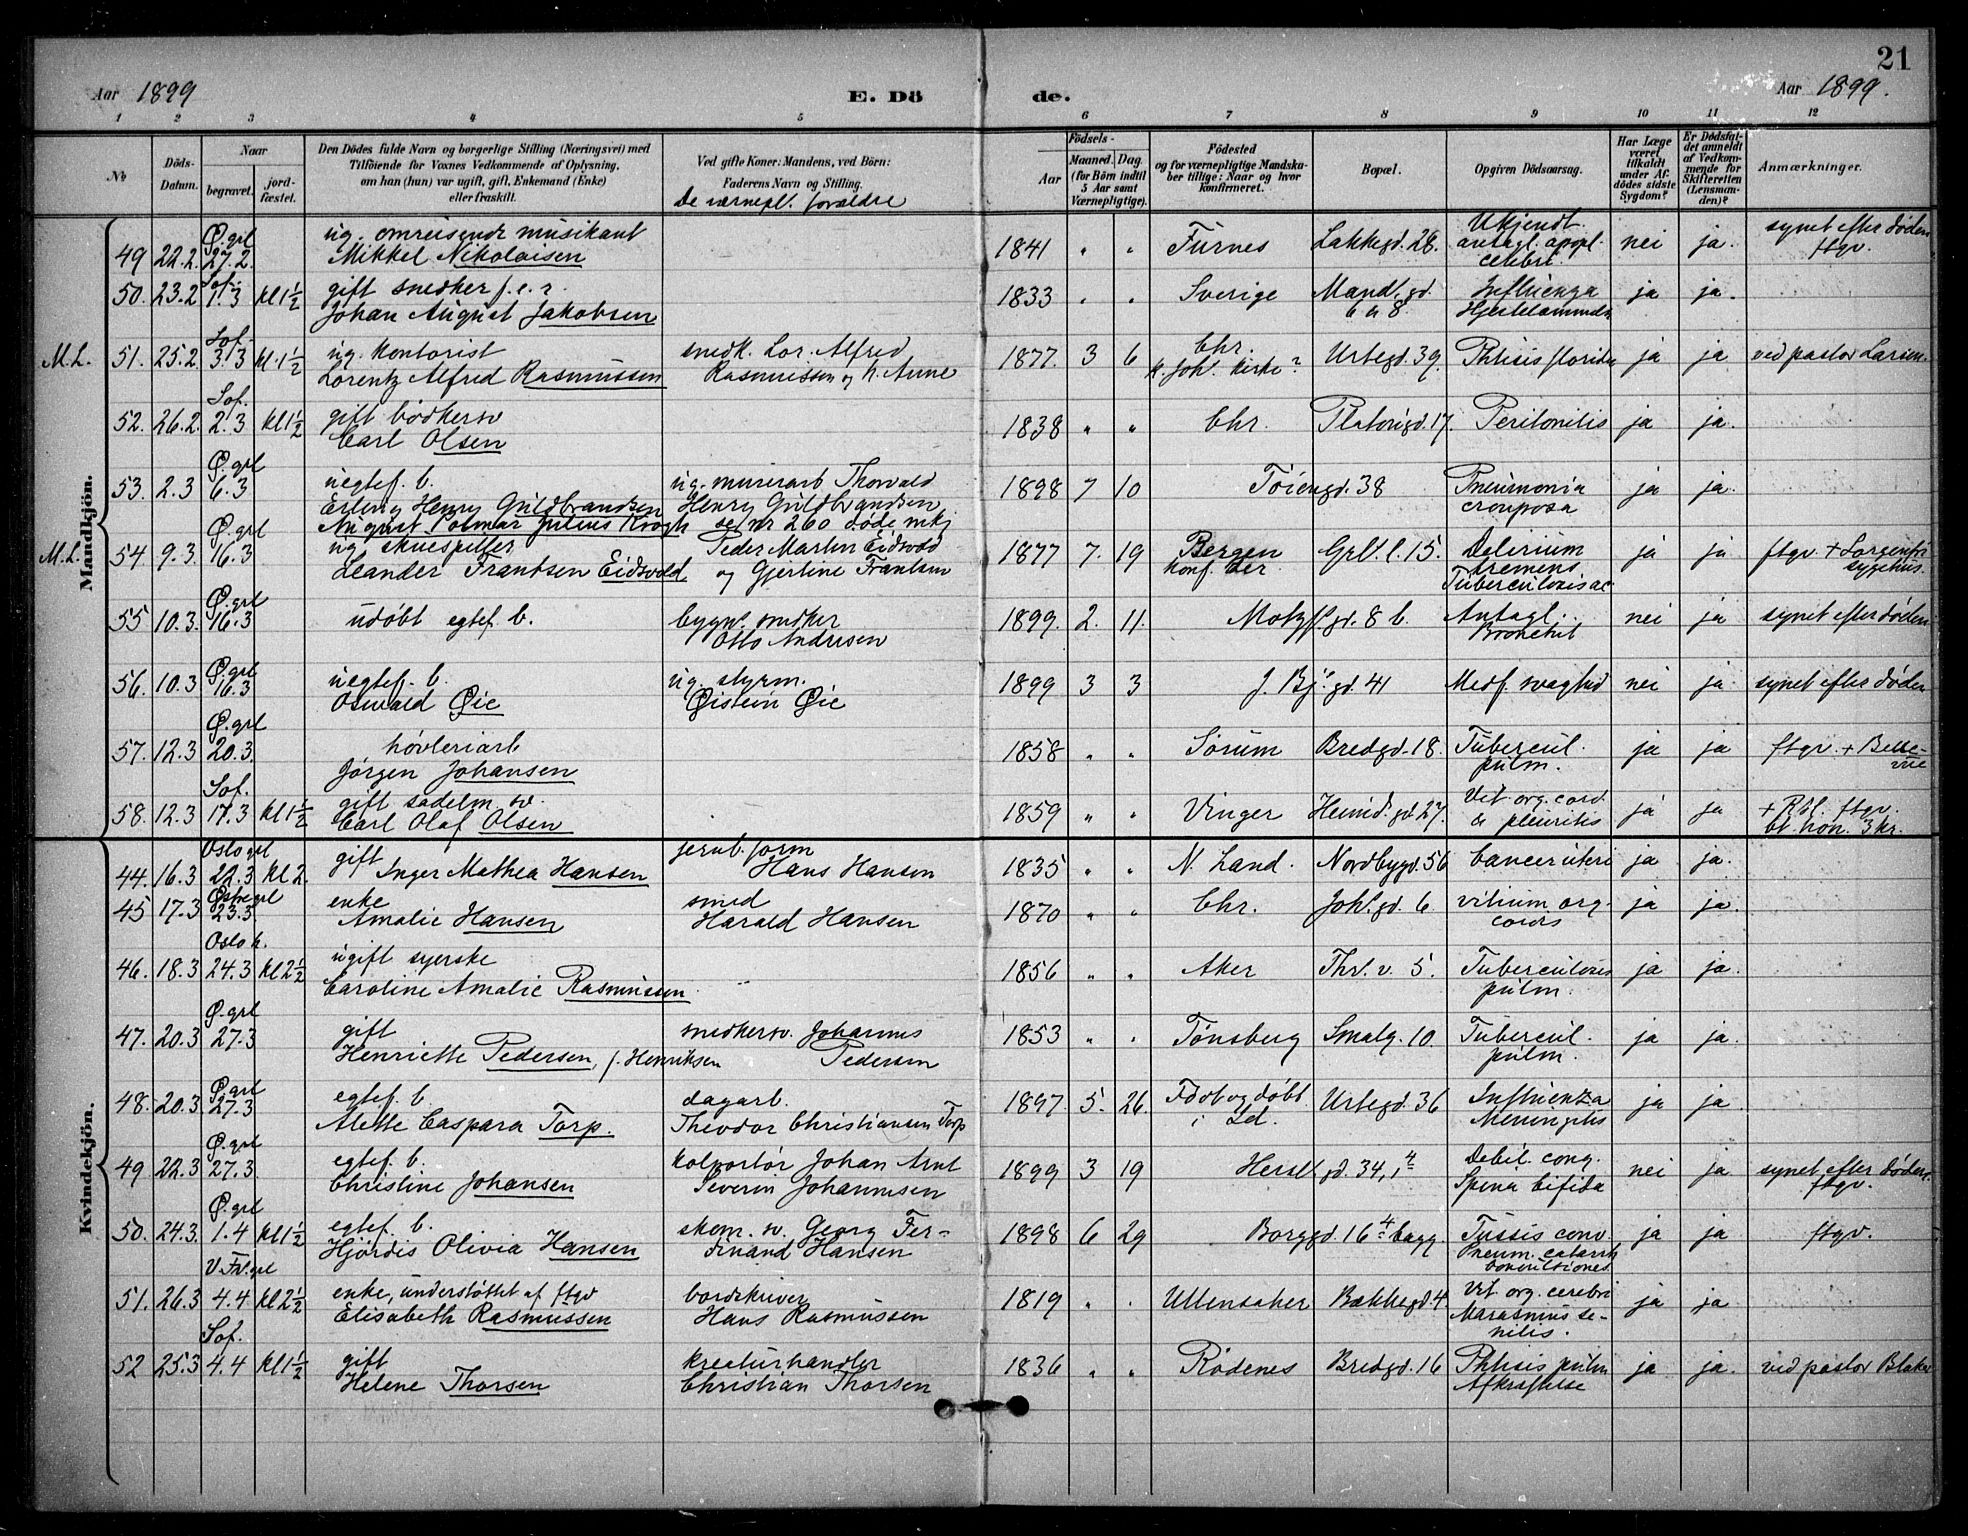 21
Aar 1899
E. Dö
de.
Aar 1899.
1 2 3 4 5 6 7 8 9 10 11 12
No
Döds-Datum.
Naar
begravet.
jord-fæstet.
Den Dödes fulde Navn og borgerlige Stilling (Næringsvei) med
Tilföiende for Voxnes Vedkommende af Oplysning,
om han (hun) var ugift, gift, Enkemand (Enke)
eller fraskilt.
Ved gifte Koner: Mandens, ved Börn:
Faderens Navn og Stilling.
De værnepl. forældre
Födsels-
Aar
Maaned. Dag.
(for Börn indtil
5 Aar samt
Værnepligtige).
Födested
og for værnepligtige Mandska-
ber tillige: Naar og hvor
konfirmeret.
Bopæl.
Opgiven Dödsaarsag.
Har Læge
været
tilkaldt
under Af-
dödes sidste
Sygdom?
Er Dödsfal-
det anmeldt
af Vedkom-
mende for
Skifteretten
(Lensman-
den)?
Anmærkninger.
Mandkjön.
49 22.2. Ø. grl 27.2. ug. omreisende musikant
Mikkel Nikolaisen 1841 " " Furnes Lakkegd. 28. Ukjendt
antagl. apopl.
celebri. nei ja. synet efter døden
ftgv.
50. 23.2 Sof. 1.3 kl 1½ gift snedker f.e.r.
Johan August Jakobsen 1833 " " Sverige Mandl. gd.
6 a 8. Influenza
ja ja.
M.L. 51. 25.2. Sof. 3.3 kl. 1½ ug. kontorist
Lorentz Alfred Rasmussen snedk. Lor. Alfred
Rasmussen og h. Anne 1877. 3 6 Chr.
k. Joh. kirke? Urtegd. 39. Phtisis florida ja ja ved pastor Larsen.
52. 26.2. Sof. 2.3 kl 1½ gift bødkersv
Carl Olsen 1838 " " Chr. Platousgd. 17. Peritonitis ja ja.
53. 2.3 Ø. grl 6.3 uegtef. b.
Erling Henry Guldbrandsen ug. murerarb Thorvald
Henry Guldbrandsen 1898 7 10 Tøiengd. 38 Pneumonia
crouposa ja ja.
August Valmar Julius Krogh se nr 260 døde mkj
M.L. 54 9.3 Ø. grl 16.3 ug. skuespiller
Leander Frantsen Eidsvold Peder Martin Eidsvold
og Gjertine Frantsen 1877 7. 19 Bergen
konf. der Grl. l. 15. Delirium
tremens
Tuberculosis ac ja ja ftgv + Lorgenfri
sygehus.
55 10.3. Ø. grl 16.3 udøbt egtef. b. bygn. snedker
Otto Andresen 1899. 2. 11. Motzf. gd. 8 b. Antagl.
Bronchit nei ja synet efter døden
56. 10.3 Ø. grl 16.3 uegtef. b.
Oswald Øie ug. styrm.
Øistein Øie 1899 3 3 J. Bj. gd. 41 Medf. svaghed nei ja synet efter døden
57. 12.3 Ø. grl 20.3. høvleriarb
Jørgen Johansen 1858 " " Sørum Bredgd. 18. Tubercul.
pulm. ja ja ftgv. + Belle-
vue
58. 12.3 Sof. 17.3 kl 1½ gift sadelm. sv.
Carl Olaf Olsen 1859 " " Vinger Heimd. gd 27. Vit. org. cord.
& pleuritis ja ja + Rh. ftgv.
bt. hon. 3 kr.
Kvindekjön.
44. 16.3 Oslo grl 22.3 kl 2. gift Inger Mathea Hansen jernb. form
Hans Hansen 1835 " " N. Land. Nordbygd. 56 Cancer uteri ja ja.
45 17.3 Østre grl 23.3. enke
Amalie Hansen smed
Harald Hansen 1870 " " Chr. Joh. gd. 6 vitium org.
cordis ja ja.
46. 18.3 Oslo k. 24.3 kl 2½ ugift syerske
Caroline Amalie Rasmussen 1856 " " Aker Thv. v. 5. Tuberculosis
pulm. ja ja.
47. 20.3 Ø. grl 27.3 gift
Henriette Pedersen, f. Henriksen snedkersv. Johannes
Pedersen 1853 " " Tønsberg Smalg. 10. Tubercul.
pulm. ja ja.
48. 20.3 Ø. grl 27.3 egtef. b.
Alette Caspara Torp. dagarb.
Theodor Christiansen Torp 1897. 5. 26. Født og døbt
i Ld. Urtegd. 36 Influenza
Meningitis ja ja
49 22.3 Ø. grl 27.3 egtef. b.
Christine Johansen kolportør Johan Arnt
Severin Johannesen 1899 3 19 Hersl gd. 34, 1⁴ Debil. cong.
Spina bifida nei ja synet efter døden.
ftgv.
50. 24.3. Ø. grl 1.4 kl 1½ egtef. b.
Hjördis Olivia Hansen skom. sv. Georg Fer-
dinand Hansen 1898 6 29 Borggd. 16⁴ bagg. Tussis conv
Pneum. catarrh
convultiones. ja ja ftgv.
51. 26.3 V. Fr. grl 4.4 kl 2½ enke, understøttet af ftgv
Elisabeth Rasmussen bordskriver
Hans Rasmussen 1819 " " Ullensaker Bakkegd. 4. Vit. org. cerebri
Marasmus se-
nilis. ja ja
52 25.3 Sof. 4.4 kl 1½ gift
Helene Thorsen kreaturhandler
Christian Thorsen 1836 " " Rødenes Bredgd. 16 Phtisis pulm
Afkræftelse ja ja. ved pastor Blaker